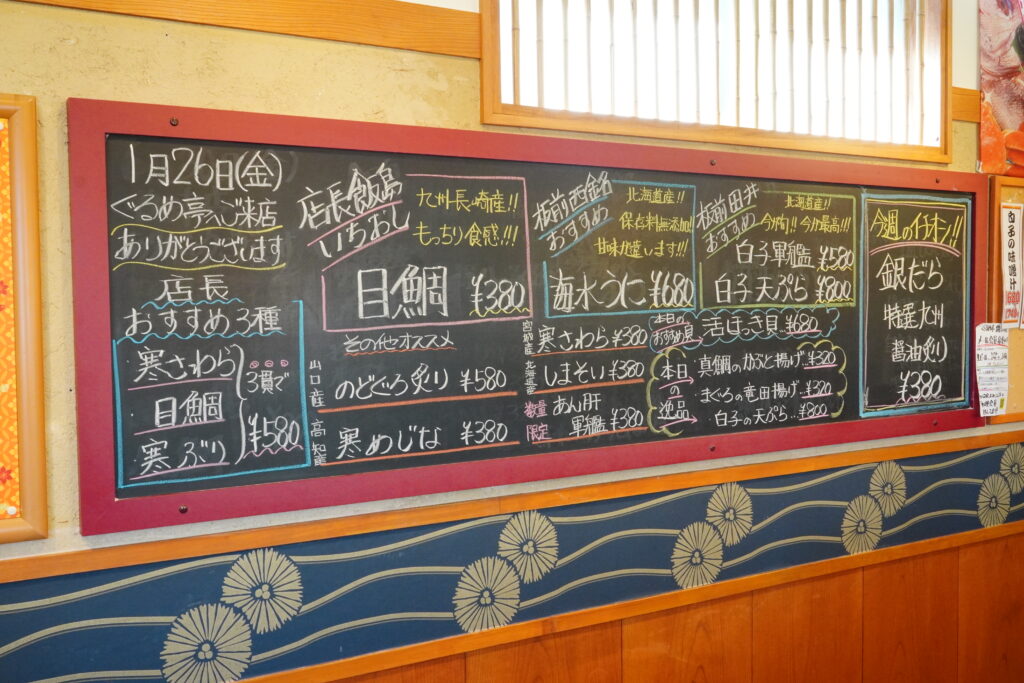 1月26日(金)
ぐるめ亭へご来店
ありがとうございます
店長
おすすめ3種
寒さわら
目鯛
寒ぶり
3貫で
¥580
店長飯島
いちおし
九州長崎産!!
もっちり食感!!!
目鯛 ¥380
その他オススメ
山口産
のどぐろ炙り ¥580
高知産
寒めじな ¥380
板前西舘
おすすめ
北海道産!!
保存料無添加!
甘味が違います!!!
海水うに ¥680
宮城産
寒さわら ¥380
北海道産
しまそい ¥380
数量
限定
あん肝
軍艦 ¥380
板前田井
おすすめ
北海道産!!
今が旬!! 今が最高!!!
白子軍艦 ¥580
白子天ぷら ¥800
本日の
おすすめ貝
活ほっき貝 ¥680
本日
の
逸品
真鯛のかぶと揚げ..¥320
まぐろの竜田揚げ..¥320
白子の天ぷら..¥800
今週のイチオシ!!
銀だら
特選九州
醤油炙り
¥380
白子の味噌汁